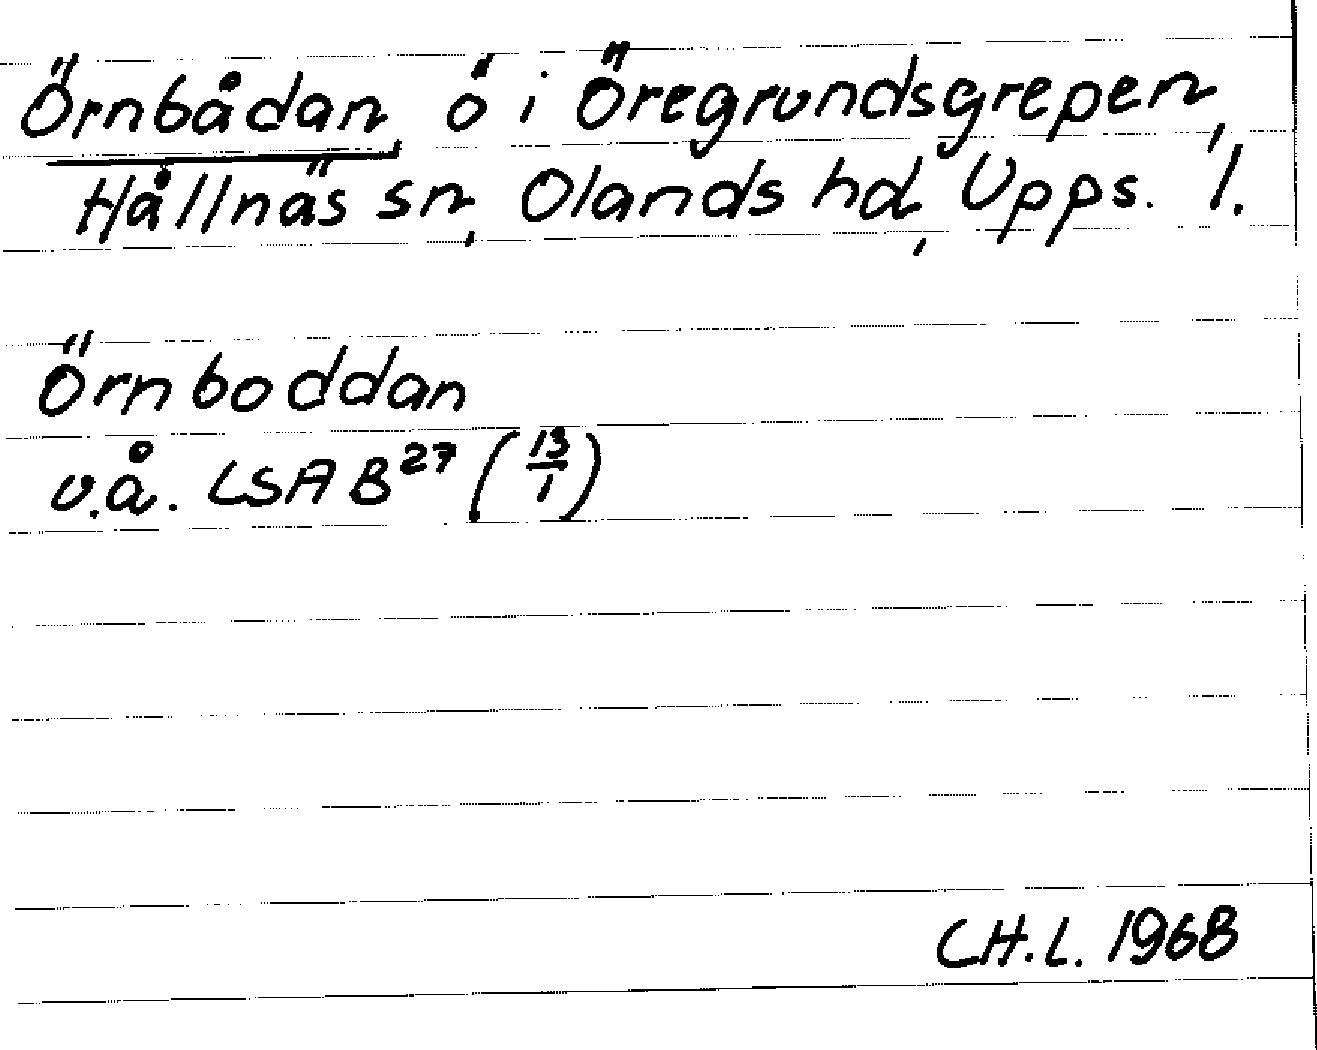 Örnbådan, ö i Öregrundsgrepen,
Hållnäs sn, Olands hd, Upps. l.
Örnboddan
v.å. LSA B²⁷ (13/1)
CH.L. 1968